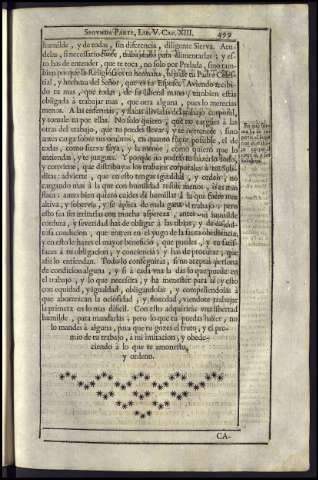 SEGVNDA PARTE, LIB. V. CAP. XIII. 499
humilde, y de todas, sin diferencia, diligente Sierva. Acu-
delas, si necessario fuere, trabajando para alimentarlas: y es-
to has de entender, que te toca, no solo por Prelada, sino tam-
bien por que la Religiosa es tu hermana, hija de tu Padre Celes-
tial, y hechura del Señor, que es tu Esposo. Aviendo recibi-
do tu mas, que todas, de su liberal mano, tambien estàs
obligada à trabajar mas, que otra alguna, pues lo merecias
menos. A las enfermas, y flacas alivialas del trabajo corporal,
y tomale tu por ellas. No solo quiero, que no cargues à las
otras del trabajo, que tu puedes llevar, y te pertenece; sino
antes carga sobre tus ombros, en quanto fuere possible, el de
todas, como sierva suya, y la menor, como quiero que lo
entiendas, y te juzgues. Y porque no podràs tu hazerlo todo,
y conviene, que distribuyas los trabajos corporales à tus sub-
ditas: advierte, que en esto tengas igualdad, y orden, no
cargando mas à la que con humildad resiste menos, ò es mas
flaca: antes bien quiero cuides de humillar à la que fuere mas
altiva, y sobervia, y se aplica de mala gana al trabajo: pero
esto sea sin irritarlas con mucha aspereza, antes con humilde
cordura, y severidad has de obligar à las tibias, y de
condicion, que entren en el yugo de la santa obediencia,
y en esto les hazes el mayor beneficio, que puedes, y tu satis-
faces à tu obligacion, y conciencia: y has de procurar, que
assi lo entiendan. Todo lo conseguiràs, si no aceptas persona
de condicion alguna, y si à cada vna la das lo que puede en
el trabajo, y lo que necessita, y ha menester para si: y esto
con equidad, y igualdad, obligandolas, y compeliendolas à
que aborrezcan la ociosidad, y floxedad, viendote trabajar
la primera en lo mas dificil. Con esto adquiriràs vna libertad
humilde, para mandarlas: pero lo que tu puedas hazer, no
lo mandes à alguna, para que tu gozes el fruto, y el pre-
mio de tu trabajo, à mi imitacion, y obede-
ciendo à lo que te amonesto,
y ordeno.
CA-